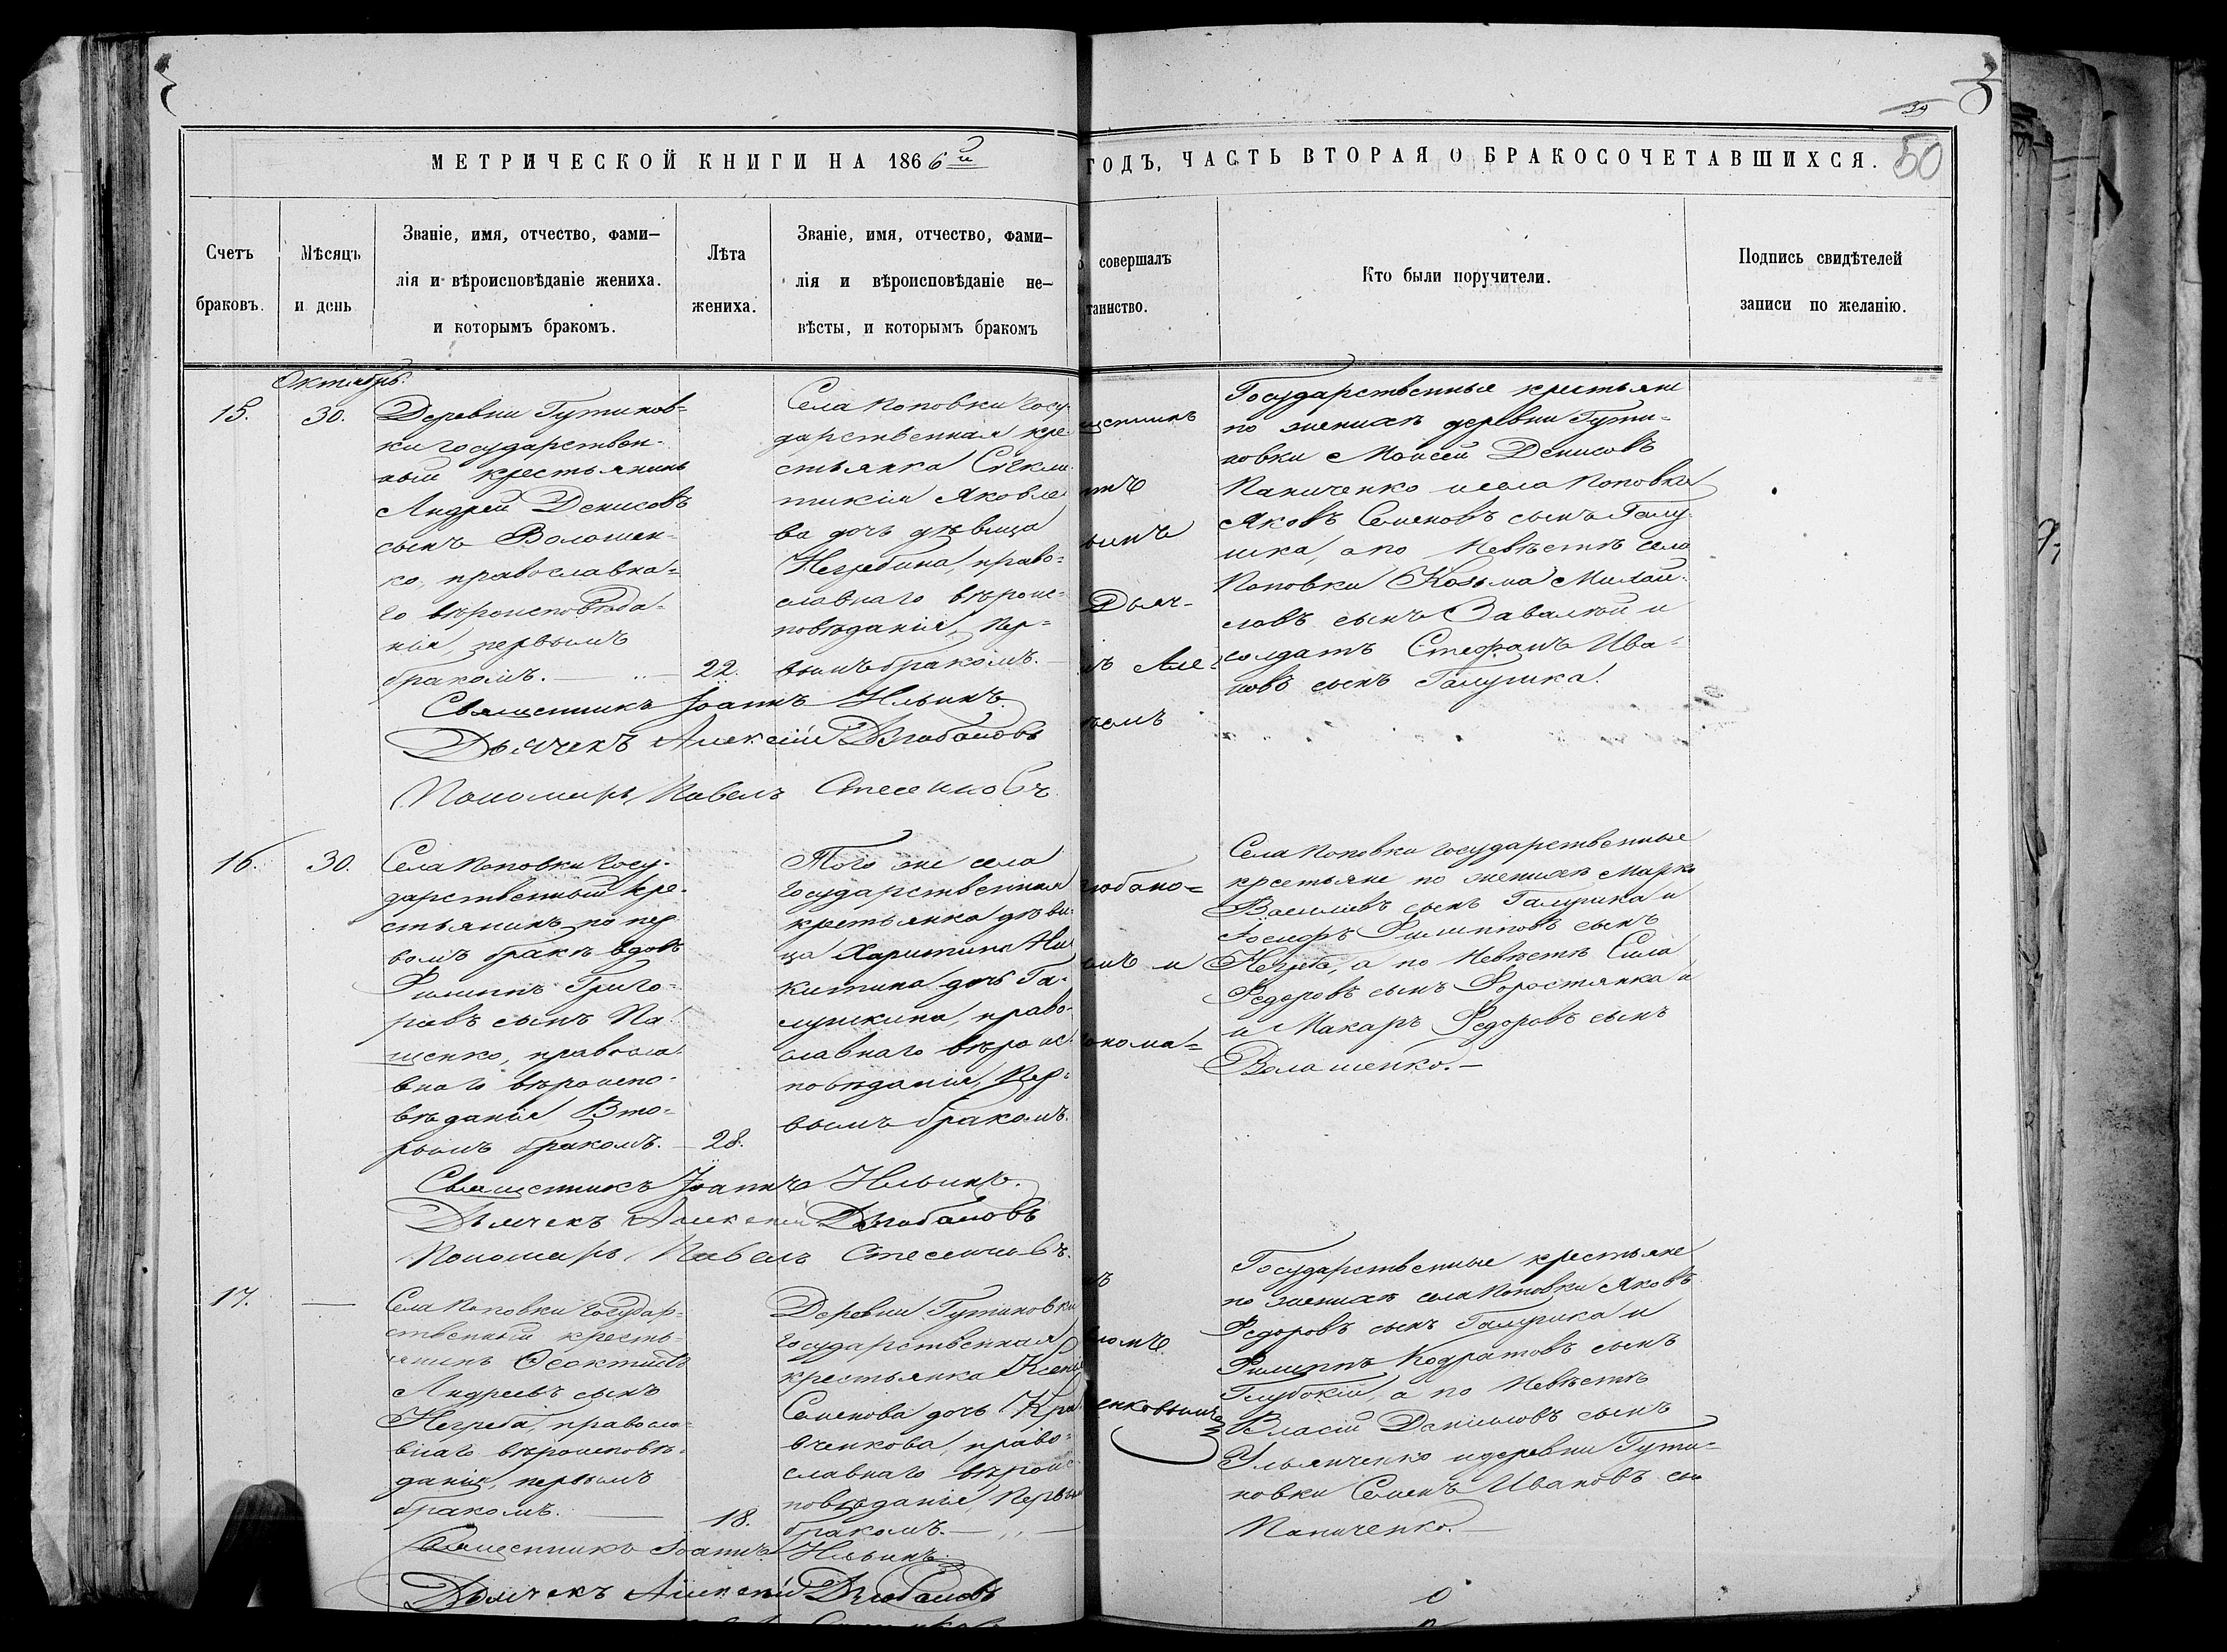 29
50
МЕТРИЧЕСКОЙ КНИГИ НА 1866й
ГОДЪ, ЧАСТЬ ВТОРАЯ О БРАКОСОЧЕТАВШИХСЯ.
Счетъ
браковъ.
Мѣсяцъ
и день
Званіе, имя, отчество, фами–
лія и вѣроисповѣданіе жениха.
и которымъ бракомъ.
Лѣта
жениха.
Званіе, имя, отчество, фами–
лія и вѣроисповѣданіе не–
вѣсты, и которымъ бракомъ
совершалъ
таинство.
Кто были поручители.
Подпись свидѣтелей
записи по желанію.
Октябрь.
15.
30.
Деревни Гутинов-
ки государствен-
ный крестьянинъ
Андрей Денисовъ
сынъ Волошен-
ко, православна-
го вѣроисповѣда-
нія, первымъ
бракомъ.
22.
Села Поповки Госу-
дарственная кре-
стьянка
Яковле
ва дочь дѣвица
Негребина, право-
славнаго вѣроис-
повѣданія, Пер-
вымъ бракомъ.
Дьяч-
Але-
Государственные крестьяне
по женихѣ деревни Гути-
новки Моисей Денисовъ
Паниченко и села Поповки
Яковъ Семеновъ сынъ Галу-
шка, а по Невѣстѣ села
Поповки Козьма Михай-
ловъ сынъ Завалий и
солдатъ Стефанъ Ива-
новъ сынъ Галушка.
Священникъ Іоаннъ Ильинъ.
Дьячекъ Алексій
Пономарь Павелъ
16.
30.
Села Поповки Госу-
дарственный кре-
стьянинъ по пер
вомъ бракѣ вдовъ
Филиппъ Григо-
рьевъ сынъ Па-
щенко, правосла-
внаго вѣроиспо-
вѣданія Вто-
рымъ бракомъ.
28.
Того же села
Государственная
крестьянка дѣви-
ца Харитина Ни
китина дочь Га-
лушкина, право-
славнаго вѣроис
повѣданія, Пер-
вымъ бракомъ.
и
понома-
Села Поповки государственные
крестьяне по женихѣ Марко
Васильевъ сынъ Галушка и
Іосифъ Филипповъ сынъ
Негреба, а по Невѣстѣ Сила
Федоровъ сынъ Форостянка и
и Макаръ Федоровъ сынъ
Волошенко.
Священникъ Іоаннъ Ильинъ.
Дьячекъ Алексій
Пономарь Павелъ
17.
—
Села Поповки Государ-
ственный кресть-
янинъ Феоктистъ
Андреевъ сынъ
Негреба, правосла-
внаго вѣроисповѣ-
данія, первымъ
бракомъ.
18.
Деревни Гутиновки
государственная
крестьянка Ксенія
Семенова дочь Кра
вченкова, право-
славнаго вѣроис
повѣданія, Первым
бракомъ.
Государственные крестьяне
по женихѣ села Поповки Яковъ
Федоровъ сынъ Галушка и
Филиппъ Кодратовъ сынъ
Глубокій, а по Невѣстѣ
Власій Даниловъ сынъ
Ульянченко и деревни Гути-
новки Семенъ Ивановъ сы
Паниченко.
Священникъ Іоаннъ Ильинъ
Дьячекъ Алексій